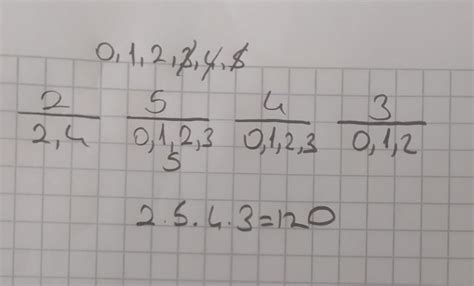 0, 1, 2, 3, 4, 5
2 5 4 3
2, 4 0, 1, 2, 3 0, 1, 2, 3 0, 1, 2
5
2.5.4.3=120